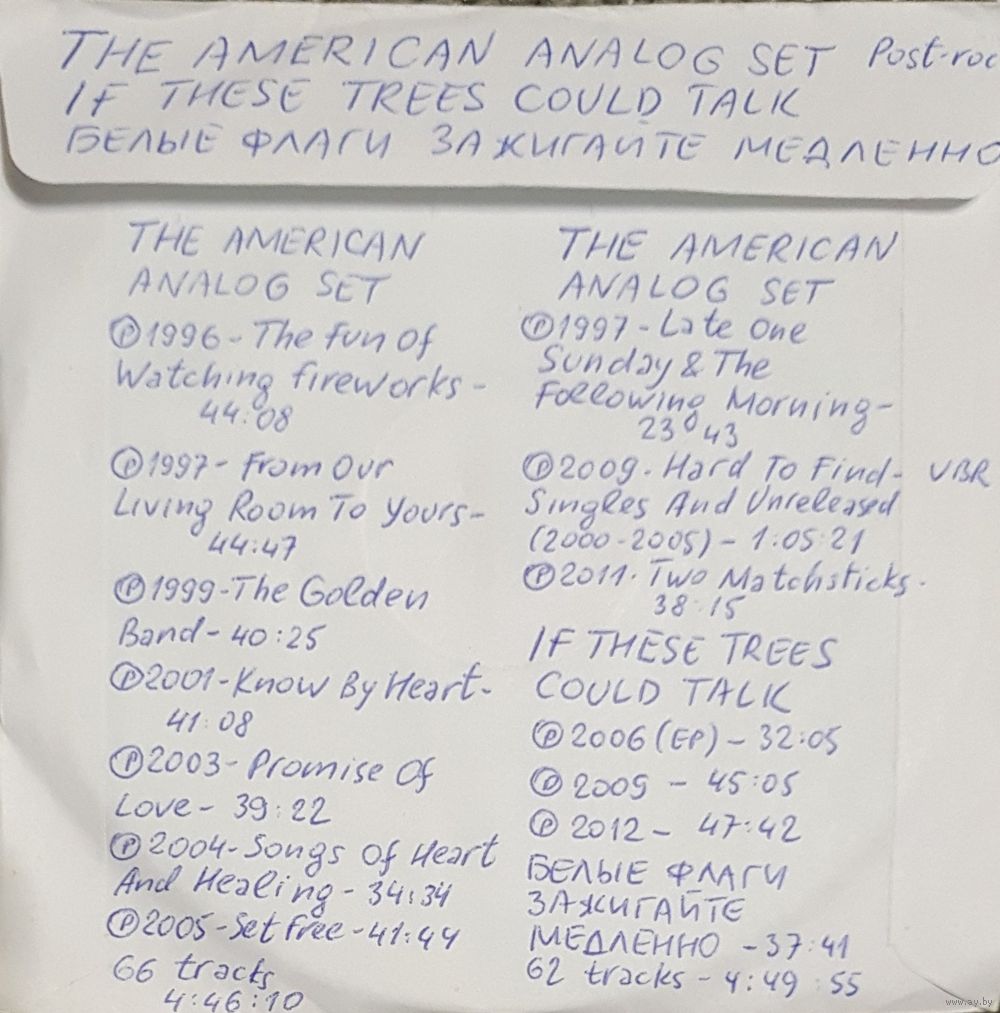 THE AMERICAN ANALOG SET Post-roc
IF THESE TREES COULD TALK
БЕЛЫЕ ФЛАГИ ЗАЖИГАЙТЕ МЕДЛЕННО
THE AMERICAN
ANALOG SET
℗1996-The Fun Of
Watching fireworks-
44:08
℗1997-From Our
Living Room To Yours-
44:47
℗1999-The Golden
Band-40:25
℗2001-Know By Heart-
41:08
℗2003-Promise Of
Love-39:22
℗2004-Songs Of Heart
And Healing-34:34
℗2005-Set Free-41:44
66 tracks
4:46:10
THE AMERICAN
ANALOG SET
℗1997-Late One
Sunday & The
Following Morning-
23:43
℗2009-Hard To Find- VBR
Singles And Unreleased
(2000-2005)-1:05:21
℗2011-Two Matchsticks-
38:15
IF THESE TREES
COULD TALK
℗2006(EP)-32:05
℗2009-45:05
℗2012-47:42
БЕЛЫЕ ФЛАГИ
ЗАЖИГАЙТЕ
МЕДЛЕННО-37:41
62 tracks-4:49:55
www.ay.by